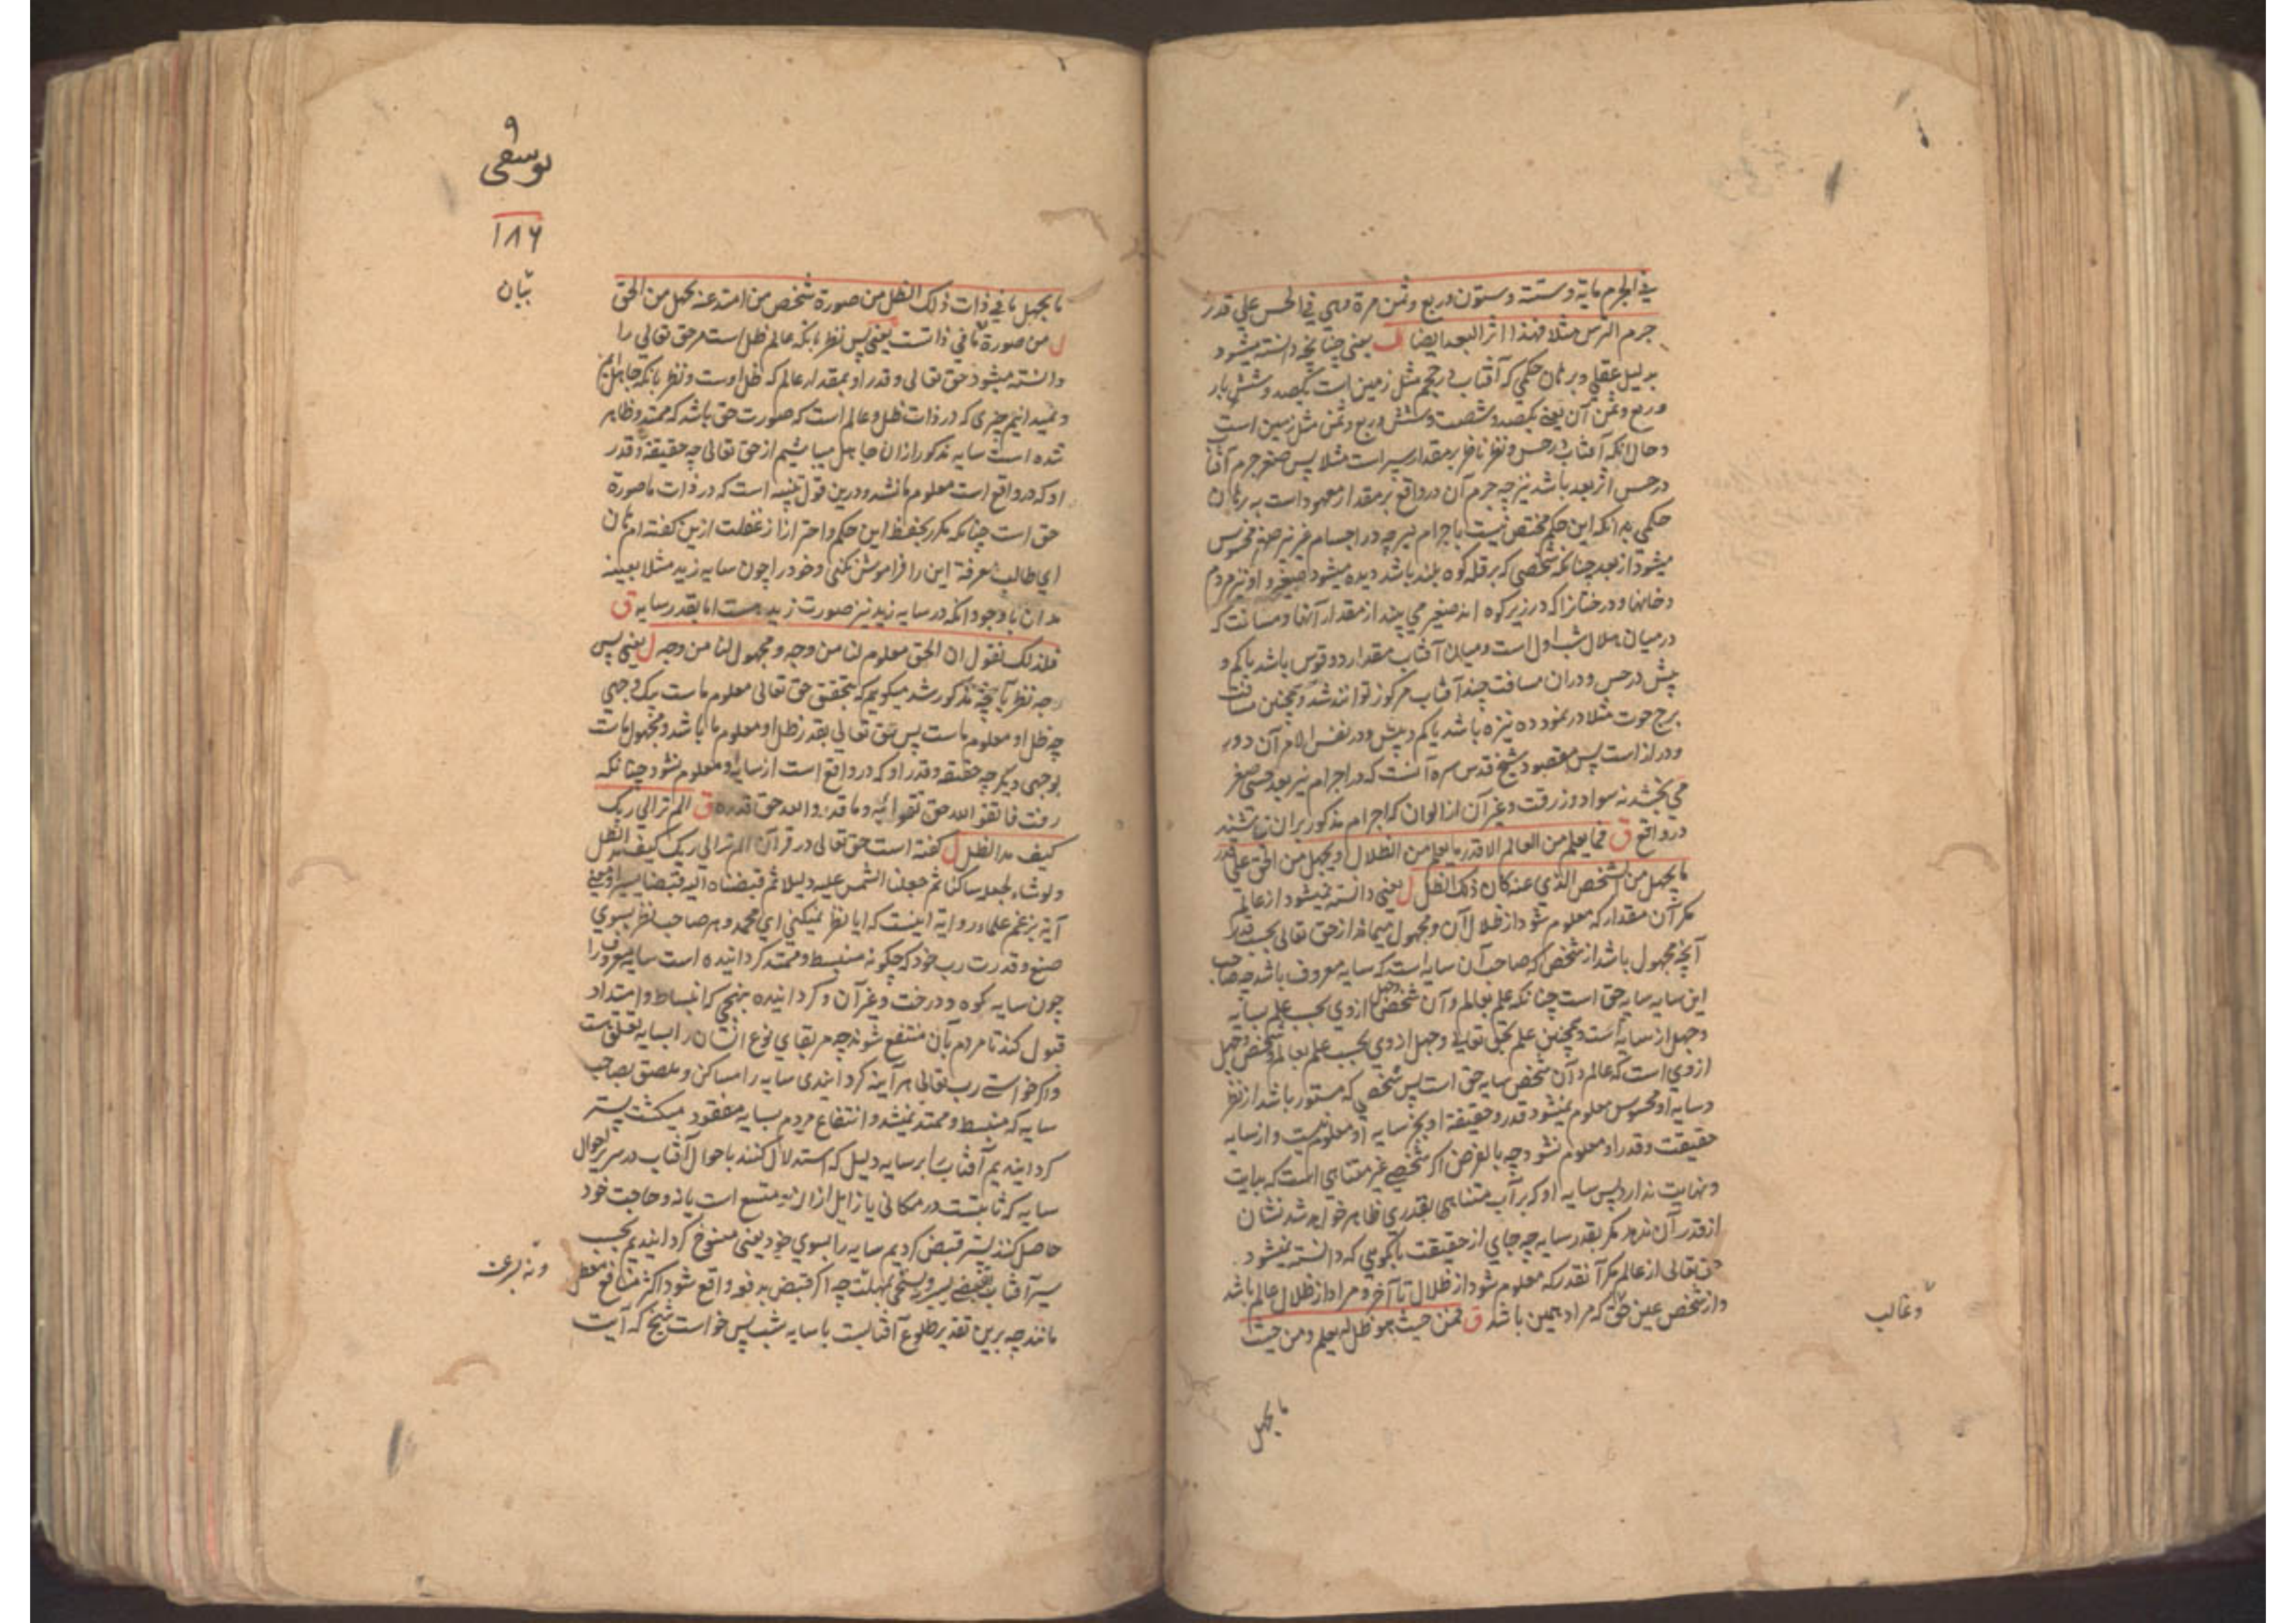 في الجرم ماية وستة وستون وربع وثمن مرة وهي في الحس علي قدر
جرم الترس مثلا فهذا اثر البعد ايضا ل يعني چنانچه دانسته میشود
بدلیل عقلي وبرهان حکمي که آفتاب در حجم مثل زمین است یکصد وشش بار
وربع وثمن آن یعنی یکصد وشصت وشش وربع وثمن مثل زمین است
وحال آنکه آفتاب در حس ونظر ناظر بر مقدار سپر است مثلا پس صغر جرم آفتاب
در حس اثر بعد باشد نیز چه جرم آن در واقع بر مقدار معهود است به برهان
حکمي بدانکه این حکم مختص نیست باجرام نیر چه در اجسام غیر نیر صغر محسوس
میشود از بعد چنانکه شخصي که بر قله کوه بلند باشد دیده میشود صغیر و او نیز مردم
وخانها ودرختانرا که در زیر کوه اند صغیر مي بیند از مقدار آنها ومسافت که
درمیان هلال شب اول است ومیان آفتاب مقدار دو قوس باشد یا کم و
بیش در حس ودران مسافت چند آفتاب مرکوز توانند شد وهمچنین مسافت
برج حوت مثلا در نمود ده نیزه باشد یا کم وبیش ودر نفس الامر آن دور
ودراز است پس مقصود شیخ قدس سره آنست که در اجرام نیر بعد حسي صغر
مي بخشد نه سواد وزرقت وغیر آن از الوان که اجرام مذکور بران نباشند
در واقع ق فما يعلم من العالم الا قدر ما يعلم من الظلال ويجهل من الحق علي قدر
ما يجهل من الشخص الذي عنه كان ذلك الظل ل یعنی دانسته نمیشود از عالم
مکر آن مقدار که معلوم شود از ظلال آن ومجهول میماند از حق تعالی بحسب قدر
آنچه مجهول باشد از شخص که صاحب آن سایه است که سایه معروف باشد چه صاحب
این سایه سایه حق است چنانکه علم بعالم وآن شخص وجهل ازوي بحسب علم بسایه
وجهل از سایه است وهمچنین علم بحق تعالی وجهل ازوي بحسب علم بعالم وشخص وجهل
ازوي است که عالم وآن شخص سایه حق است پس شخصي که مستور باشد از نظر
وسایه او محسوس معلوم نمیشود قدر وحقیقة او بجز سایه او معلوم نیست واز سایه
حقیقت وقدر او معلوم نشود چه بالفرض اکر شخصی غیر متناهي است که بدایت
ونهایت ندارد پس سایه او که بر آب متناهی بقدري ظاهر خواهد شد نشان
از قدر آن ندهد مکر بقدر سایه چه جاي از حقیقت یا کوئي که دانسته نمیشود
حق تعالی از عالم مکر آنقدر که معلوم شود از ظلال تا آخر ومراد از ظلال عالم باشد
واز شخص عین حق که مراد همین باشد ق فمن حيث هو ظل له يعلم ومن حيث
وغالب
ما يجهل
٩
يوسفى
١٨٦
بيان
ما يجهل ما في ذات ذلك الظل من صورة شخص من امتد عنه يجهل من الحق
ل من صورة ما في ذاتست یعنی پس نظر بانکه عالم ظل است مر حق تعالی را
دانسته میشود حق تعالی وقدر او بمقدار عالم که ظل اوست ونظر بانکه جاهل ایم
ونمیدانیم چیزی که در ذات ظل وعالم است که صورت حق باشد که ممتد وظاهر
شده است سایه مذکور ازان جاهل میباشیم از حق تعالی چه حقیقة وقدر
او که در واقع است معلوم ما نشد ودرین قول تنبیه است که در ذات ما صورة
حق است چنانکه مکرر بحفظ این حکم واحتراز از غفلت ازین کفته ام هان
اي طالب معرفة این را فراموش نکني وخود را چون سایه زید مثلا بعینه
بدان با وجود آنکه در سایه زید نیز صورت زید هست اما بقدر سایه ق
فلذلك نقول ان الحق معلوم لنا من وجه ومجهول لنا من وجه ل یعنی پس
وجه نظر بآنچه مذکور شد میکویم که بتحقیق حق تعالی معلوم ماست بیک وجهي
چه ظل او معلوم ماست پس حق تعالي بقدر ظل او معلوم ما باشد ومجهول ماست
بوجهي دیکر چه حقیقه وقدر او که در واقع است از سایه او معلوم نشود چنانکه
رفت فاتقوا الله حق تقواه وما قدروا الله حق قدره ق الم تر الي ربك
كيف مد الظل ل کفته است حق تعالی در قرآن الم تر الي ربك كيف مد الظل
ولو شاء لجعله ساكنا ثم جعلنا الشمس عليه دليلا ثم قبضناه اليه قبضا يسيرا ومعني
آیة بزعم علماء روایة اینست که ایا نظر نمیکني اي محمد وهر صاحب نظر بسوي
صنع وقدرت رب خود که چکونه منبسط وممتد کردانیده است سایه معروف را
چون سایه کوه ودرخت وغیر آن وکردانیده بنهجي که انبساط وامتداد
قبول کند تا مردم بآن منتفع شوند چه مر بقاي نوع انسان را بسایه تعلق است
واکر خواستی رب تعالی هر آینه کردانیدی سایه را ساکن وملصق بصاحب
سایه که منبسط وممتد نمیشد وانتفاع مردم بسایه مفقود میکشت پستر
کردانیدیم آفتاب را بر سایه دلیل که استدلال کنند باحوال آفتاب در سیر باحوال
سایه که ثابتست در مکاني یا زایل ازان یا متسع است یا نه وحاجت خود
حاصل کنند پستر قبض کردیم سایه را بسوي خود یعنی منسوخ کردانیدیم بحسب
سیر آفتاب بقبضی یسیر وبنحوي بمهلت چه اکر قبض بدفعه واقع شود اکثر منافع معطل
مانند چه برین تقدیر طلوع آفتابست یا سایه شب پس خواست شیخ که آیت
ونه بسرعت